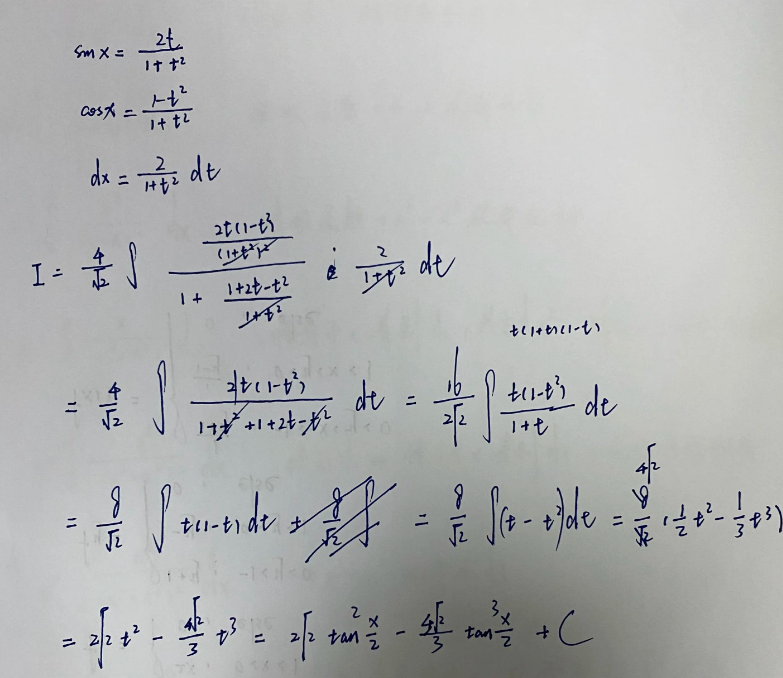 sin x = 2t / (1 + t²)
cos x = (1 - t²) / (1 + t²)
dx = 2 / (1 + t²) dt
I = 4/√2 ∫ [2t(1-t²) / (1+t²)²] / [1 + (1+2t-t²) / (1+t²)] · 2 / (1+t²) dt
t(1+t)(1-t)
= 4/√2 ∫ 2t(1-t²) / (1+t²+1+2t-t²) dt = 16 / 2√2 ∫ t(1-t²) / (1+t) dt
= 8/√2 ∫ t(1-t) dt ± 8/√2 ∫ = 8/√2 ∫ (t - t²) dt = 8/√2 4√2 (1/2 t² - 1/3 t³)
= 2√2 t² - 4√2/3 t³ = 2√2 tan² x/2 - 4√2/3 tan³ x/2 + C